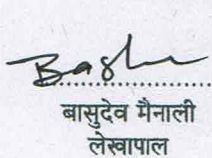 बासुदेव मैनाली
लेखापाल